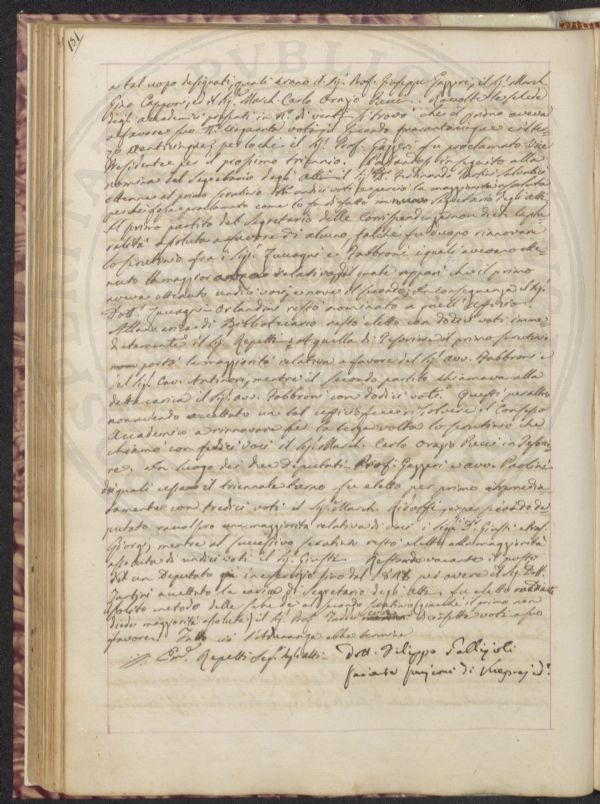 151
a tal uopo designati, quali erano il Sig. Prof. Giuseppe Gazzeri, il Sig. March.
Gino Capponi, ed il Sig. March. Carlo Orazio Pucci. Raccolte le schede
degli accademici presenti in N. di venti si trovò che il primo aveva
a favore suo N. cinquanta voti, il secondo quarantacinque e il ter-
zo ventisei per lo chè il Sig. Prof. Gazzeri fu proclamato Vice
Presidente per il prossimo triennio. in seguito alla
nomina del Segretario degli Atti il Sig. D. Ferdinando
ottenne al primo scrutinio voti undici voti e perciò la maggiorità assoluta
perchè fosse proclamato come lo fu di fatto in nuovo Segretario degli Atti.
Il primo partito del Segretario delle Corrispondenze non diede la plu-
ralità assoluta a favore di alcuno, talchè fu duopo rinnovare
lo scrutinio fra i Sig. Zuccagni e Fabbroni i quali avevano otte-
nuto la maggiorità relativa, dal quale apparì che il primo
aveva ottenuto undici voci, e nove il secondo; in conseguenza il Sig.
Dott. Zuccagni Orlandini restò nominato a quell'Uffizio.
Alla carica di Bibliotecario restò eletto con dodici voti imme-
diatamente il Sig. Repetti. A quella di Tesoriere il primo scrutinio
non portò la maggiorità relativa a favore del Sig. Avv. Fabbroni e
del Sig. Cav. Antinori, mentre il secondo partito chiamava alla
detta carica il Sig. Avv. Fabbroni con dodici voti. Questi peraltro
non avendo accettato un tal uffizio fece risolvere il Consesso
Accademico a rinnovare per la terza volta lo scrutinio che
chiamò con sedici voci il Sig. March. Carlo Orazio Pucci in Tesorie-
re. In luogo dei due Deputati Prof. Gazzeri e Avv. Paolini
dei quali cessava il triennale turno fu eletto per primo immedia-
tamente con tredici voti il Sig. March. Ridolfi, e per secondo de-
putato raccolsero una maggiorità relativa di voci i Sig. D. Giusti e Prof.
Giorgi, mentre al successivo scrutinio restò eletto alla maggiorità
assoluta di undici voti il Sig. Giusti. Restando vacante il posto
di un Deputato in esercizio fino dal 1818 per avere il Sig. Dott.
Tartini accettato la carica di Segretario degli Atti, fu eletto mediante
il solito metodo delle schede al secondo scrutinio (giacchè il primo non
diede maggiorità assoluta) il Sig. Prof. voti a suo
favore. Dopo di che l'adunanza ebbe termine
Em. Repetti Seg. degli Atti
Dott. Filippo Gallizioli
facente funzioni di Vicepresid.